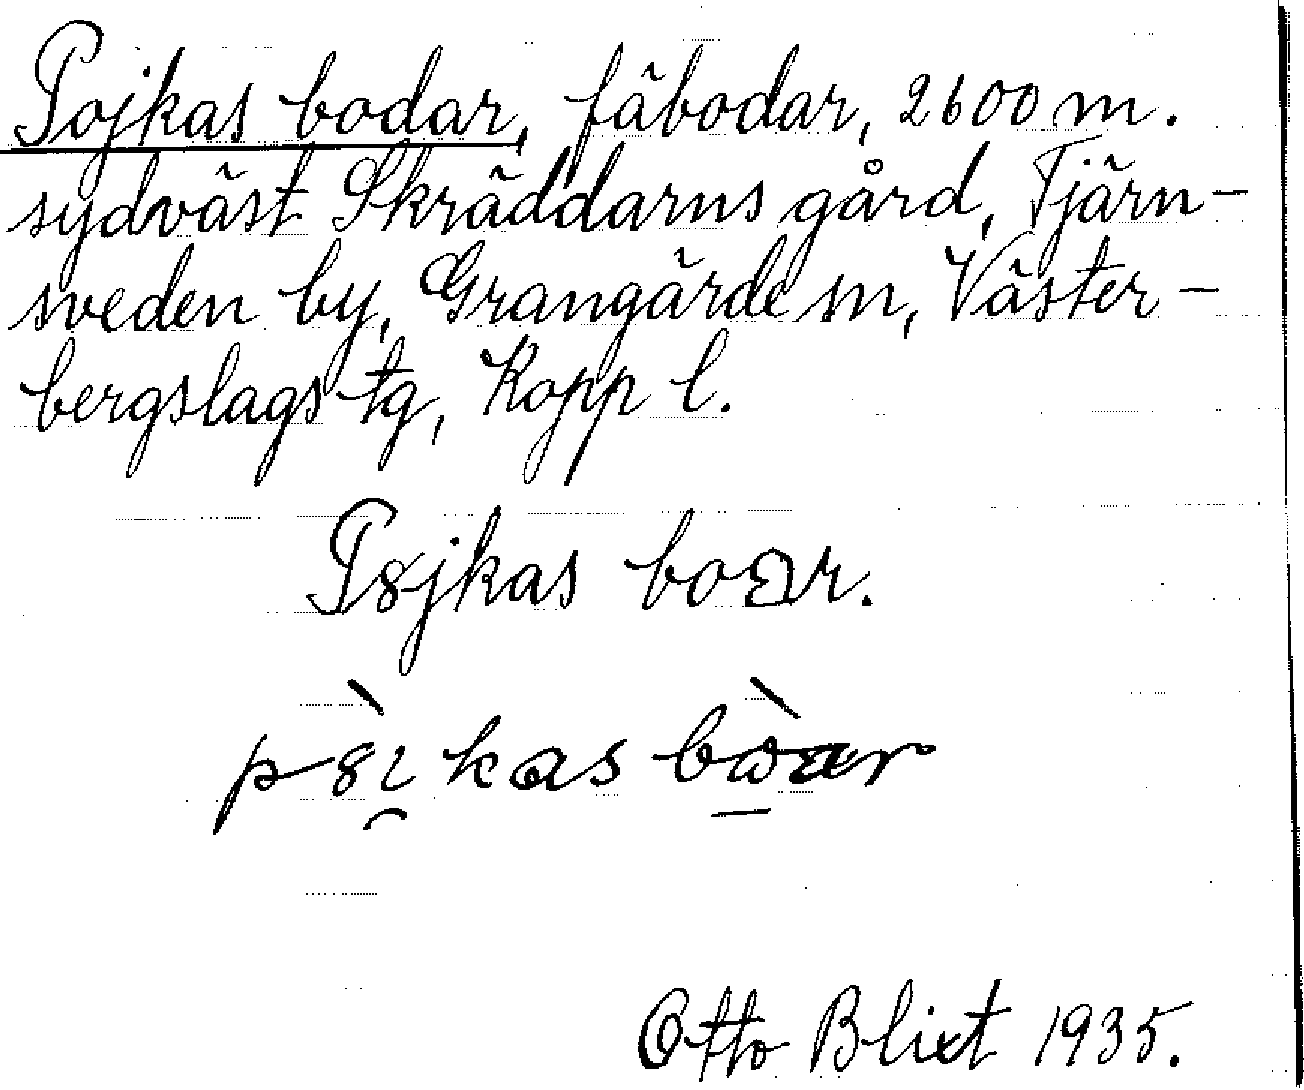 Pojkas bodar, fäbodar, 2600 m.
sydväst Skräddarns gård, Tjärn-
sveden by, Grangärde sn, Väster-
bergslags tg, Kopp l.
P8jkas boar.
Otto Blixt 1935.